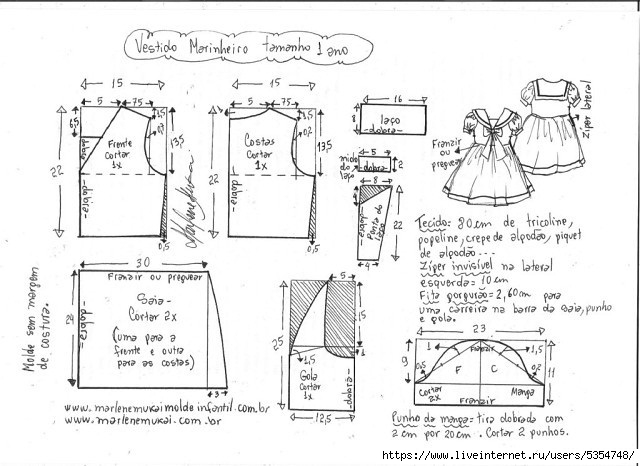 Vestido Marinheiro tamanho 1 ano
15
5
7,5
1,5
6,5
22
13,5
0,2
Frente
Cortar
1x
dobra
-dobra-
0,5
15
5
7,5
1,5
22
13,5
0,2
Costas
Cortar
1x
-dobra-
0,5
16
8
laço
-dobra-
5
miolo
do
laço
2
-dobra-
8
22
Ponta do
laço
-dobra-
4
Franzir
ou
preguear
Zíper lateral
Tecido= 80cm de tricoline,
popeline, crepe de algodão, piquet
de algodão...
Zíper invisível na lateral
esquerda= 10cm
Fita gorgurão= 2,60cm para
uma carreira na barra da saia, punho
e gola.
Molde sem margem
de costura.
30
Franzir ou preguear
24
-dobra-
Saia-
Cortar 2x
(uma para a
frente e outra
para as costas)
3
5
25
15
1
1,5
Gola
Cortar
1x
-dobra-
12,5
23
9
1
Franzir
1,5
0,5
0,2
F
C
11
Cortar
2x
Manga
Franzir
Punho da manga= tira dobrada com
2cm por 20cm. Cortar 2 punhos.
www.marlenemukaimoldeinfantil.com.br
www.marlenemukai.com.br
https://www.liveinternet.ru/users/5354748/